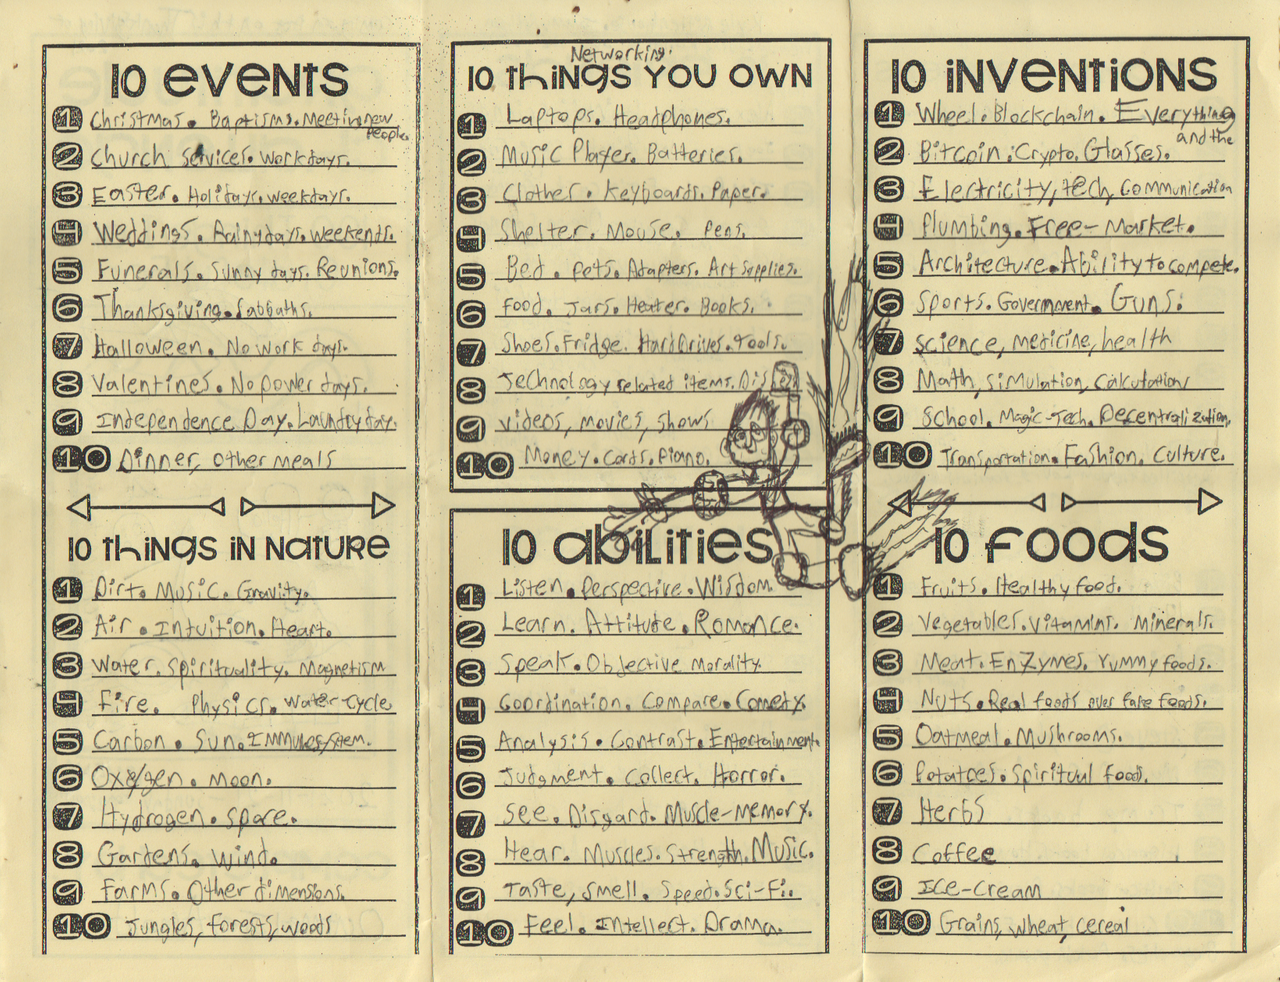 10 EVENTS
1 Christmas. Baptisms. Meeting new people.
2 Church Services. workdays.
3 Easter. Holidays. weekdays.
4 Weddings. Rainy days. weekends.
5 Funerals. Sunny days. Reunions.
6 Thanksgiving. Sabbaths.
7 Halloween. No work days.
8 Valentines. No power days.
9 Independence Day. Laundry day.
10 Dinner, other meals
10 THINGS IN NATURE
1 Dirt. Music. Gravity.
2 Air. Intuition. Heart.
3 Water. Spirituality. Magnetism
4 Fire. Physics. Water-cycle
5 Carbon. Sun. Immune system.
6 Oxygen. moon.
7 Hydrogen. space.
8 Gardens. wind.
9 Farms. Other dimensions.
10 Jungles, forests, woods
Networking.
10 THINGS YOU OWN
1 Laptops. Headphones.
2 Music Player. Batteries.
3 Clother. Keyboards. Paper.
4 Shelter. Mouse. Pens.
5 Bed. pets. Adapters. Art supplies.
6 Food. Jars. Heater. Books.
7 Shoes. Fridge. Hard Drives. Tools.
8 Technology related items.
9 videos, movies, shows
10 Money. Cards. Piano.
10 ABILITIES
1 Listen. Perspective. Wisdom.
2 Learn. Attitude. Romance.
3 Speak. Objective morality.
4 Coordination. Compare. Comedy.
5 Analysis. Contrast. Entertainment.
6 Judgment. Collect. Horror.
7 See. Disgard. Muscle-memory.
8 Hear. Muscles. Strength. Music.
9 Taste, smell. Speed. Sci-Fi.
10 Feel. Intellect. Drama.
10 INVENTIONS
1 Wheel. Blockchain. Everything and the
2 Bitcoin. Crypto. Glasses.
3 Electricity, tech, communication
4 Plumbing. Free-Market.
5 Architecture. Ability to compete.
6 Sports. Government. Guns.
7 science, medicine, health
8 Math, simulation, calculation
9 School. Magic-Tech. Decentralization.
10 Transportation. Fashion. Culture.
10 FOODS
1 Fruits. Healthy food.
2 Vegetables. Vitamins. Minerals.
3 Meat. Enzymes. Yummy foods.
4 Nuts. Real foods over fake foods.
5 Oatmeal. Mushrooms.
6 Potatoes. Spiritual food.
7 Herbs
8 Coffee
9 Ice-Cream
10 Grains, wheat, cereal